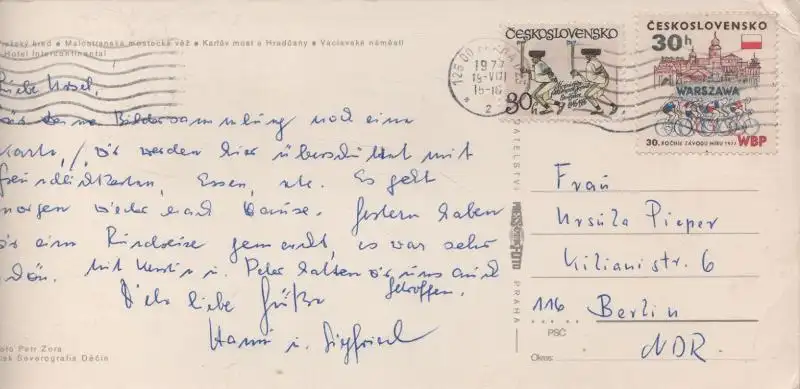 Pražský hrad ● Malostranská mostecká věž ● Karlův most a Hradčany ● Václavské náměstí
Hotel Intercontinental
Liebe Ursel,
für deine Bildersammlung noch eine
Karte, wir werden hier überschüttet mit
Essen, etc. Es geht
morgen wieder nach Hause. Gestern haben
wir eine Rundreise gemacht, es war sehr
schön. Mit Kerstin u. Peter hatten wir uns auch
getroffen.
Viele liebe Grüße
Hanni u. Siegfried
Foto Petr Zora
Tisk Severografia Děčín
PRAHA
1977
15-16
2
ČESKOSLOVENSKO
30
ČESKOSLOVENSKO
30h
WARSZAWA
30. ROČNÍK ZÁVODU MÍRU 1977
WBP
PRESSFOTO
PRAHA
Frau
Ursula Pieper
Kilianistr. 6
116 Berlin
PSČ
NDR.
Okres: